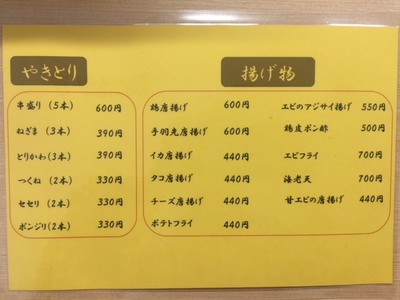 やきとり
串盛り (5本) 600円
ねぎま (3本) 390円
とりかわ(3本) 390円
つくね (2本) 330円
セセリ (2本) 330円
ボンジリ(2本) 330円
揚げ物
鶏唐揚げ 600円
手羽先唐揚げ 600円
イカ唐揚げ 440円
タコ唐揚げ 440円
チーズ唐揚げ 440円
ポテトフライ 440円
エビのアジサイ揚げ 550円
鶏皮ポン酢 500円
エビフライ 700円
海老天 700円
甘エビの唐揚げ 440円